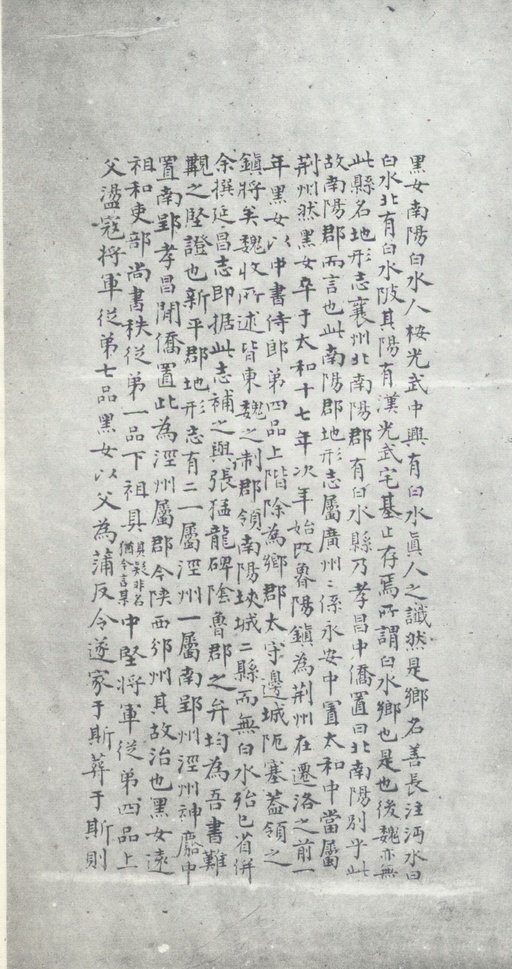 黑女南陽白水人桉光武中興有白水真人之讖然是鄉名善長注沔水曰
白水北有白水陂其陽有漢光武宅基止存焉所謂白水鄉也是也後魏亦無
此縣名地形志襄州北南陽郡有白水縣乃孝昌中僑置曰北南陽別乎此
故南陽郡而言也此南陽郡地形志屬廣州〻係永安中置太和中當屬
荊州然黑女卒于太和十七年次年始改魯陽鎮為荊州在遷洛之前一
年黑女以中書侍郎第四品上階除為鄉郡太守邊城阨塞蓋領之
鎮將矣魏收所述皆東魏之制郡領南陽埉城二縣而無白水殆已省併
余撰延昌志即据此志補之與張猛龍碑陰魯郡之弁均為吾書難
覯之堅證也新平郡地形志有二一屬涇州一屬南郢州涇州神䴥中
置南郢孝昌閒僑置此為涇州屬郡今陝西邠州其故治也黑女遠
祖和吏部尚書秩從第一品下祖具具疑非名猶今言某中堅將軍從第四品上
父盪寇將軍從第七品黑女以父為蒲反令遂家于斯葬于斯則